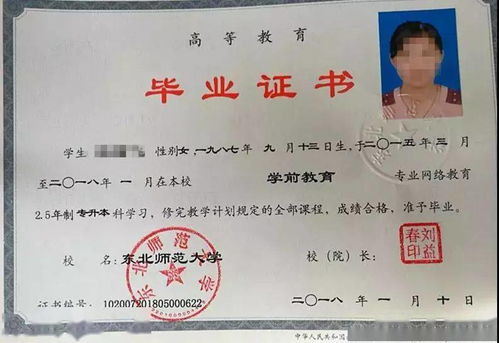 高等教育
毕业证书
学生 性别女,一九八七年 九 月十三日生,于二〇一五年 三 月
至二〇一八年 一 月在本校 学前教育 专业网络教育
2.5年制 专升本 科学习,修完教学计划规定的全部课程,成绩合格,准予毕业。
校 名:东北师范大学 校(院)长:
刘益春印
东北师范大学
证书编号:102007201805000622 二〇一八年 一 月 十 日
中华人民共和国